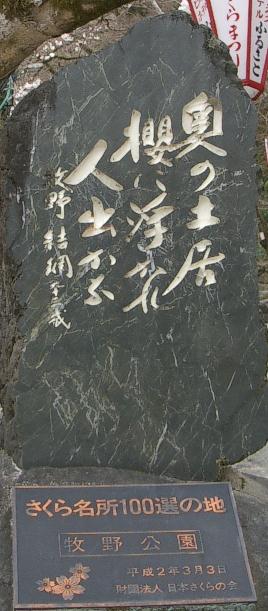 奥の土居
櫻に浮かれ
人出かな
牧野
さくらまつり
ふるさと
さくら名所100選の地
牧野公園
平成2年3月3日
財団法人 日本さくらの会